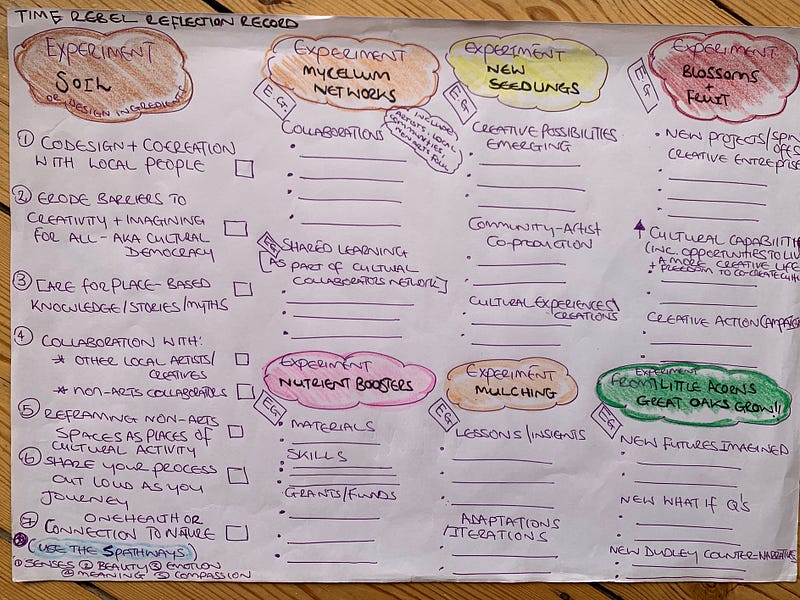 TIME REBEL REFLECTION RECORD
EXPERIMENT
SOIL
OR DESIGN INGREDIENTS
① CODESIGN + COCREATION
WITH LOCAL PEOPLE
② ERODE BARRIERS TO
CREATIVITY + IMAGINING
FOR ALL - AKA CULTURAL
DEMOCRACY
③ CARE FOR PLACE-BASED
KNOWLEDGE/STORIES/MYTHS
④ COLLABORATION WITH:
* OTHER LOCAL ARTISTS/
CREATIVES
* NON-ARTS COLLABORATORS
⑤ REFRAMING NON-ARTS
SPACES AS PLACES OF
CULTURAL ACTIVITY
⑥ SHARE YOUR PROCESS
OUT LOUD AS YOU
JOURNEY
⑦ ONEHEALTH OR
CONNECTION TO NATURE
(USE THE 5PATHWAYS)
① SENSES ② BEAUTY ③ EMOTION
④ MEANING ⑤ COMPASSION
EXPERIMENT
MYCELLUM
NETWORKS
E.G
INCLUDE
ARTISTS, LOCAL
COMMUNITIES
NON ARTS FOLK
COLLABORATIONS
EG
SHARED LEARNING
[AS PART OF CULTURAL
COLLABORATORS NETWORK]
EXPERIMENT
NUTRIENT BOOSTERS
EG
MATERIALS
SKILLS
GRANTS/FUNDS
EXPERIMENT
NEW
SEEDLINGS
E.G
CREATIVE POSSIBILITIES
EMERGING
COMMUNITY-ARTIST
CO-PRODUCTION
CULTURAL EXPERIENCES/
CREATIONS
EXPERIMENT
MULCHING
EG
LESSONS/INSIGHTS
ADAPTATIONS
/ITERATIONS
EXPERIMENT
BLOSSOMS
+
FRUIT
E.G
• NEW PROJECTS/SPIN
OFFS
CREATIVE ENTERPRISE
↑ CULTURAL CAPABILITI
(INC. OPPORTUNITIES TO LIV
A MORE CREATIVE LIFE
+ FREEDOM TO CO-CREATE
CREATIVE ACTION CAMPAIG
EXPERIMENT
FROM LITTLE ACORNS
GREAT OAKS GROW!!
EG
NEW FUTURES IMAGINED
NEW WHAT IF Q'S
NEW DUDLEY COUNTER-NARRATIVE